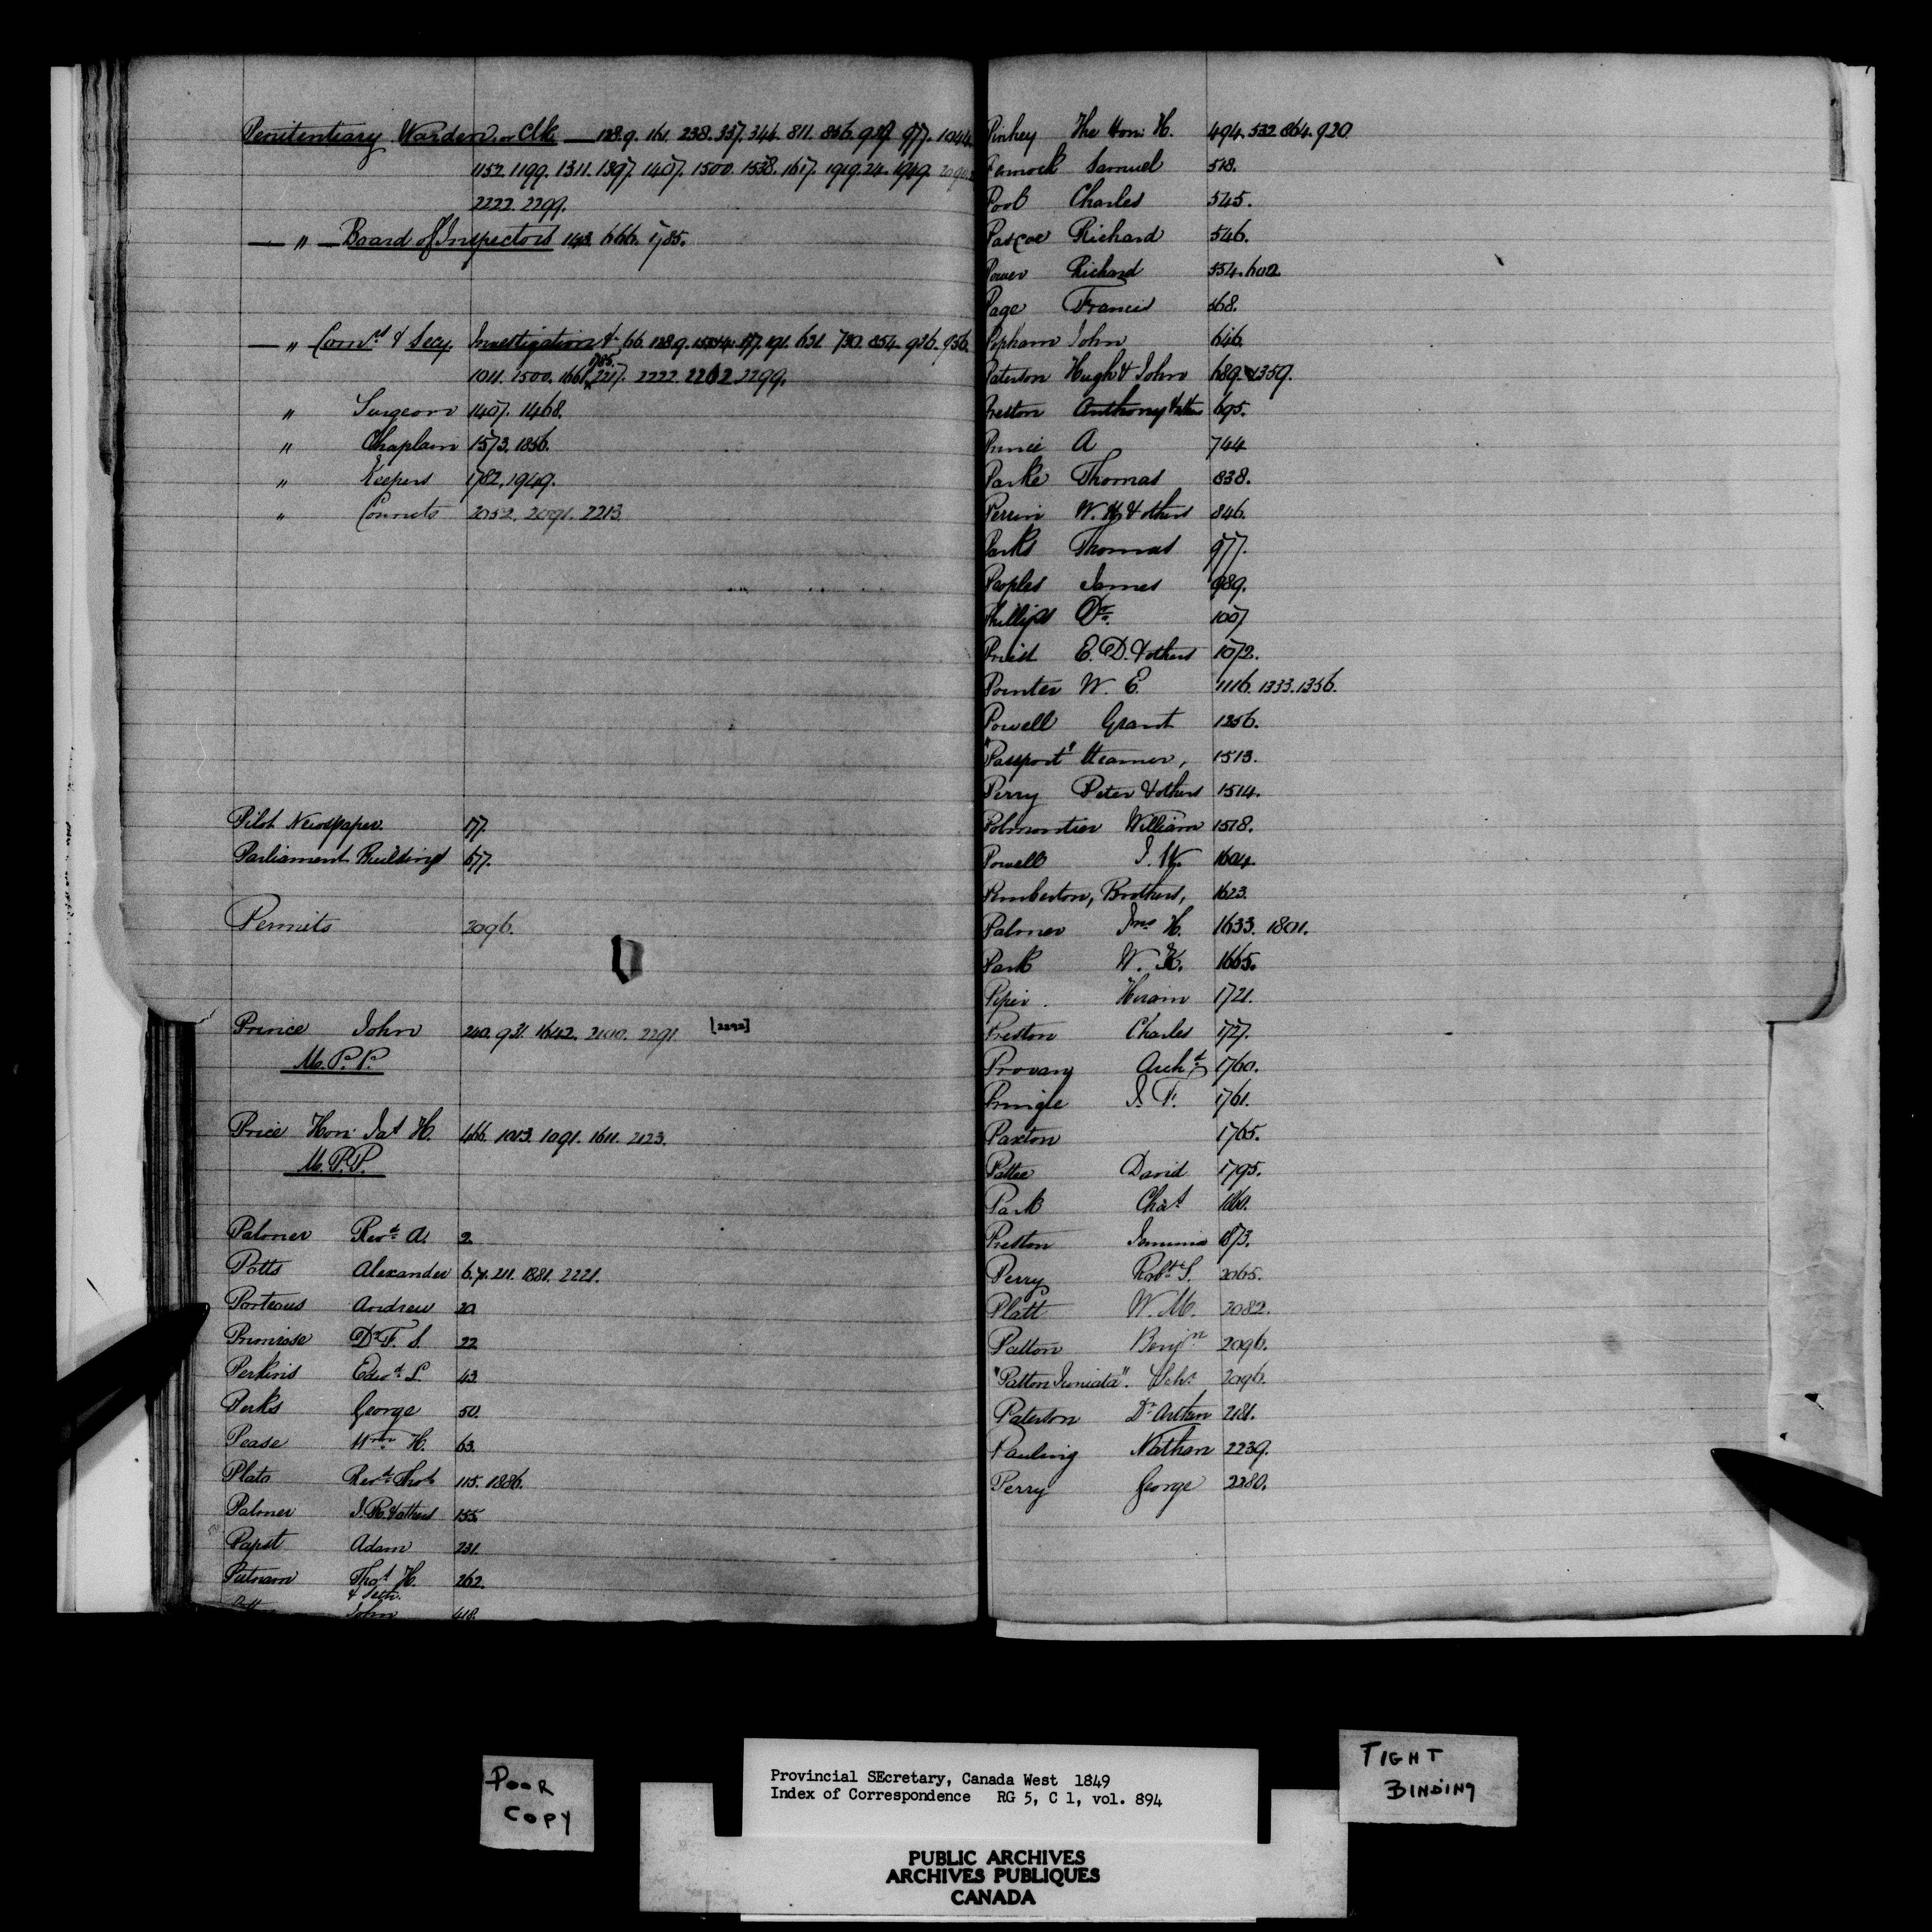 Penitentiary Warden or Clk — 128.9. 161. 238. 337. 346. 811. 836. 977. 1044.
1152. 1199. 1311. 1397. 1407. 1500. 1538. 1617. 1919.24. 1949.
2222. 2299.
— " — Board of Inspectors 143. 666. 1785.
— " Comrs & Secy. Investigation & 66. 128.9. 177. 191. 631. 730. 854. 926. 936.
1785.
1011. 1500. 1661. 2217. 2222. 2262. 2299.
" Surgeon 1407. 1468.
" Chaplain 1573. 1856.
" Keepers 1782. 1949.
" Convicts 2052. 2091. 2213.
Pilot Newspaper. 177.
Parliament Buildings 677.
Permits 2096.
Prince John 240. 931. 1642. 2100. 2291. [2292]
M.P.P.
Price Hon: Jas H. 466. 1013. 1091. 1611. 2123.
M.P.P.
Palmer Revd A. 2.
Potts Alexander 6.7. 211. 1881. 2221.
Porteous Andrew 20
Primrose Dr F. S. 22
Perkins Edwd L. 43.
Perks George 50.
Pease Wm H. 63.
Plato Revd Thos 115. 1886.
Palmer J. R. & others 155.
Papst Adam 231.
Putnam Thos H. 262.
& Seth.
John 418.
Pinhey The Hon: H. 494. 532. 864. 920
Samuel 518.
Pool Charles 545.
Pascoe Richard 546.
Power Richard 554. 602
Page Francis 568.
Popham John 646.
Paterson Hugh & John 689. 1359.
Preston Anthony & others 695.
Prince A 744
Parke Thomas 838.
Perrin W. H. & others 846.
Parks Thomas 977.
Peoples James 989.
Phillips Dr. 1007
Priest E. D. & others 1072.
Pointer W. E. 1116. 1333. 1356.
Powell Grant 1256.
"Passport" Steamer, 1513.
Perry Peter & others 1514.
Polmontier William 1518.
Powell J. W. 1604
Pemberton, Brothers, 1623.
Palmer Jno H. 1633. 1801.
Park W. H. 1665.
Piper Hiram 1721.
Preston Charles 1727.
Provany Archd 1760.
Pringle J. F. 1761.
Paxton 1765.
Pattee David 1795.
Park Chas 1860.
Preston Jemima 1873.
Perry Robt S. 2065.
Platt W. M. 2082.
Patton Benjn 2096.
"Patton Juniata". Schr 2096.
Paterson Dr Arthur 2181.
Pauling Nathan 2239.
Perry George 2280.
POOR
COPY
Provincial SEcretary, Canada West 1849
Index of Correspondence RG 5, C 1, vol. 894
TIGHT
BINDING
PUBLIC ARCHIVES
ARCHIVES PUBLIQUES
CANADA